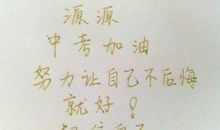 源源
中考加油
努力让自己不后悔
就好！